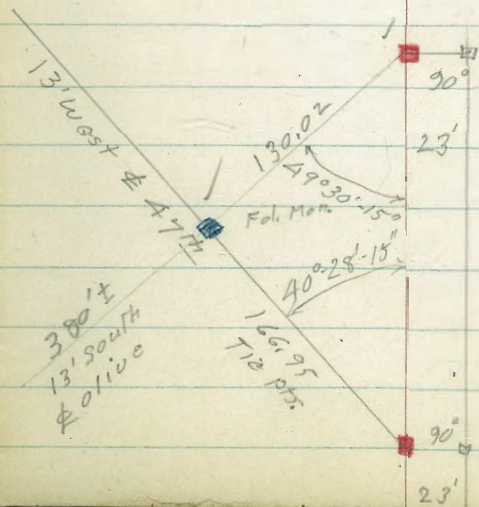 13' West ℄ 47th
130.02
49°30'-15"
90°
23'
Fd. Mon.
40°-28'-15"
380'±
13' South
℄ Olive
166.95
Tie pts.
90°
23'